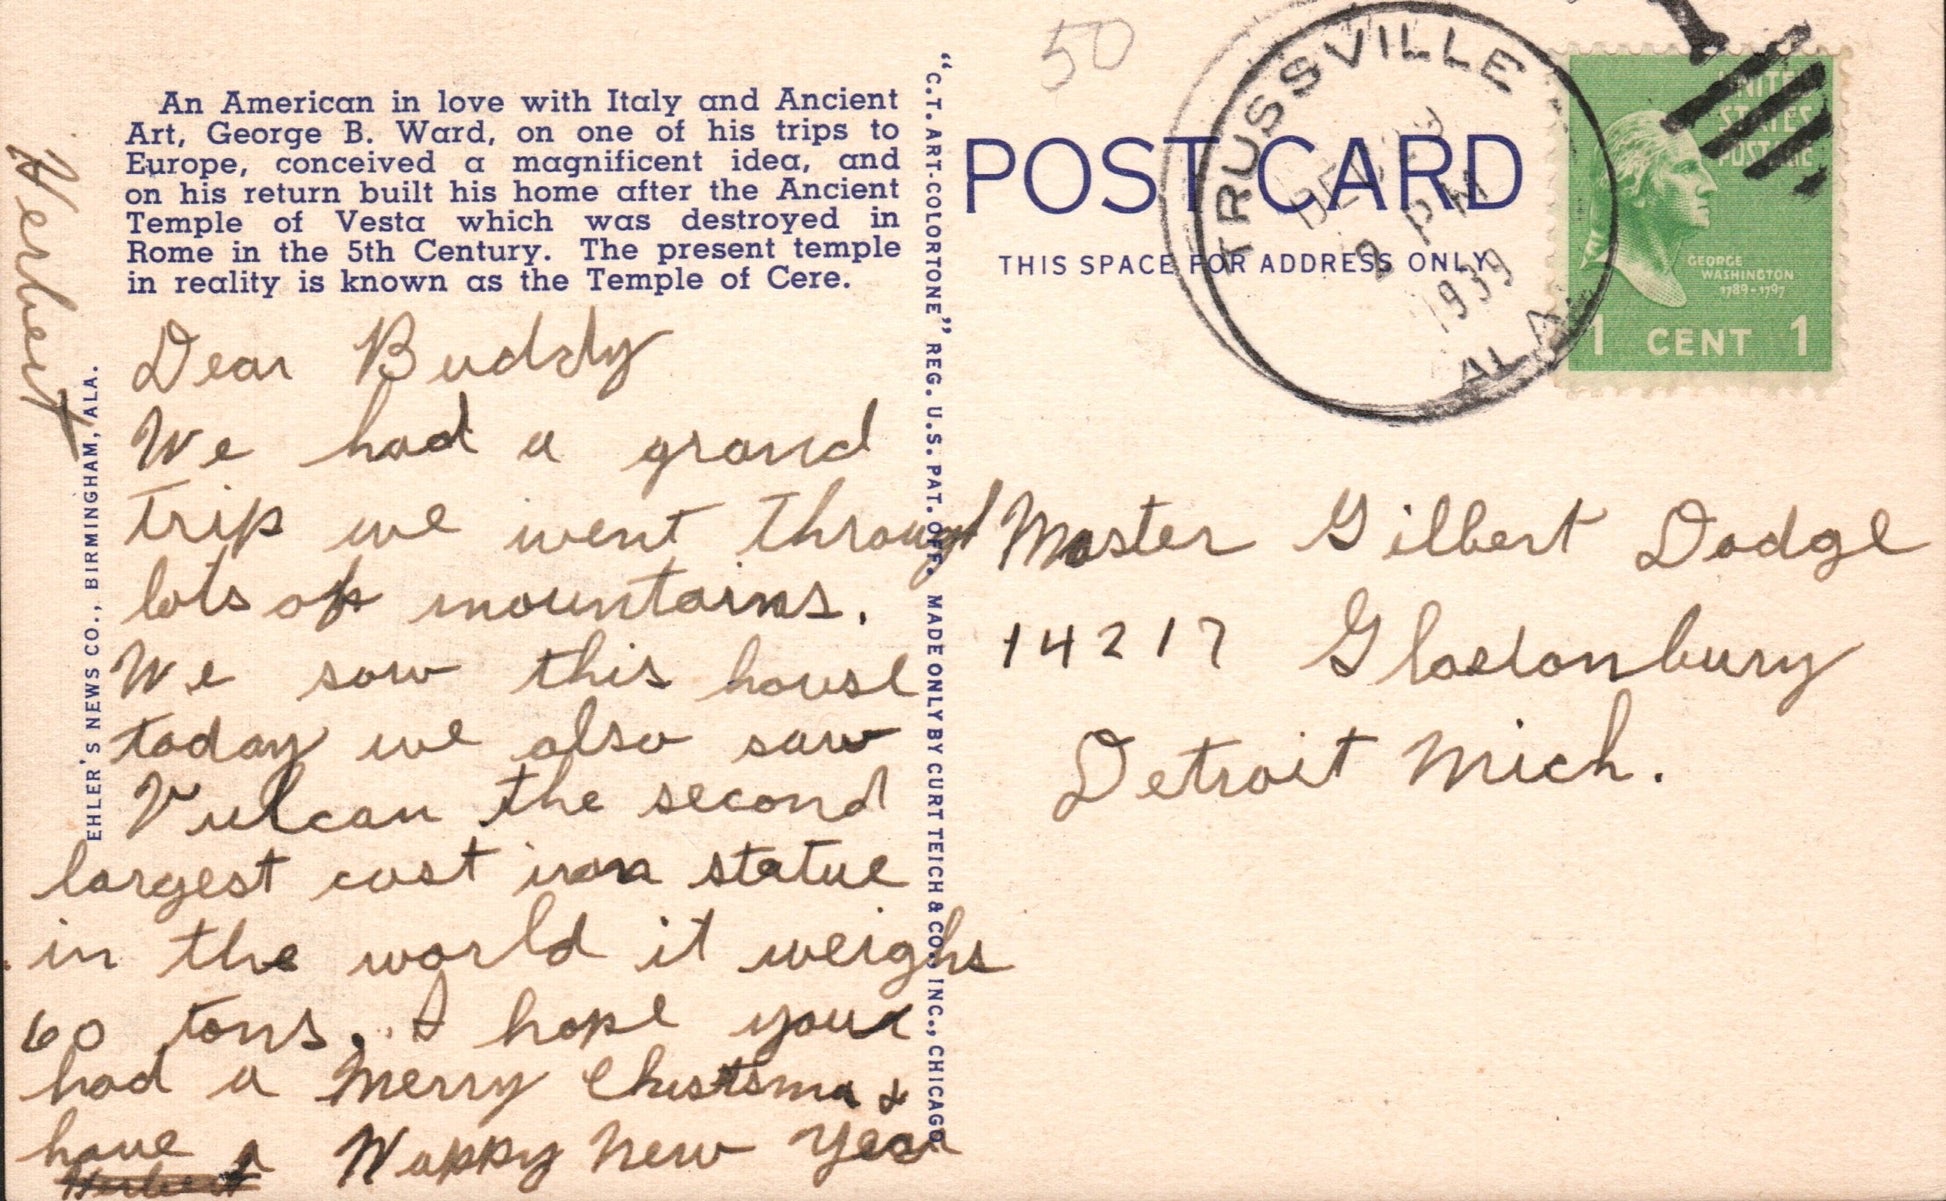 An American in love with Italy and Ancient
Art, George B. Ward, on one of his trips to
Europe, conceived a magnificent idea, and
on his return built his home after the Ancient
Temple of Vesta which was destroyed in
Rome in the 5th Century. The present temple
in reality is known as the Temple of Cere.
Dear Buddy
We had a grand
trip we went through
lots of mountains.
We saw this house
today we also saw
Vulcan the second
largest cast iron statue
in the world it weighs
60 tons. I hope your
had a Merry Chistsma &
have a Happy New Year
Herbert
Herbert
EHLER'S NEWS CO., BIRMINGHAM, ALA.
"C.T. ART-COLORTONE" REG. U.S. PAT. OFF. MADE ONLY BY CURT TEICH & CO., INC., CHICAGO
50
POST CARD
THIS SPACE FOR ADDRESS ONLY
TRUSSVILLE
2 PM
1939
ALA.
UNITED
STATES
POSTAGE
GEORGE
WASHINGTON
1789-1797
1 CENT 1
Master Gilbert Dodge
14217 Glastonbury
Detroit Mich.